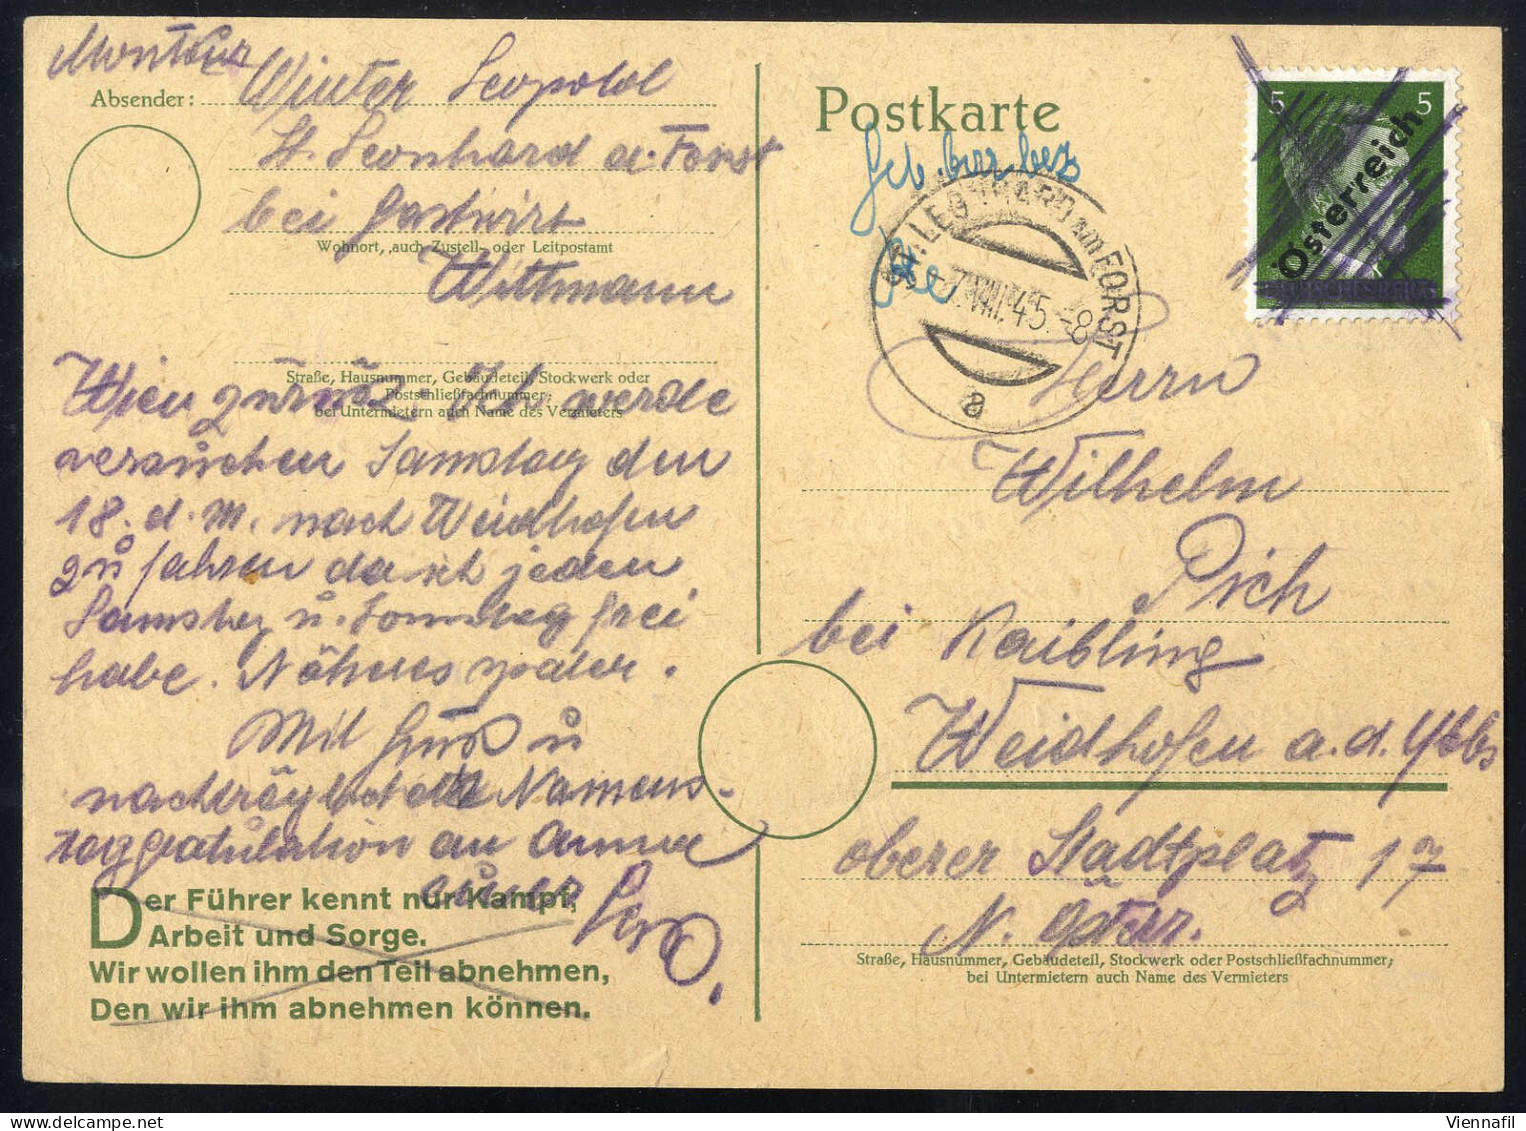 Monteur
Absender: Winter Leopold
St. Leonhard a. Forst
bei Gastwirt
Wohnort, auch Zustell- oder Leitpostamt
Wittmann
Straße, Hausnummer, Gebäudeteil, Stockwerk oder
Postschließfachnummer;
bei Untermietern auch Name des Vermieters
Wien zurück. Ich werde
versuchen Samstag den
18. d. M. nach Weidhofen
zu fahren da ich jeden
Samstag u. Sonntag frei
habe. Näheres später.
Mit Gruß u
nachträglicher Namens-
taggratulation an Anna
euer Leo.
Der Führer kennt nur Kampf,
Arbeit und Sorge.
Wir wollen ihm den Teil abnehmen,
Den wir ihm abnehmen können.
Postkarte
Geb. bez
ST. LEONHARD am FORST
-7.VIII.45.-8
a
5 5
Österreich
Herrn
Wilhelm
Pich
bei Kaibling
Weidhofen a.d. Ybbs
oberer Stadtplatz 17
N. Öster.
Straße, Hausnummer, Gebäudeteil, Stockwerk oder Postschließfachnummer;
bei Untermietern auch Name des Vermieters
Viennafil